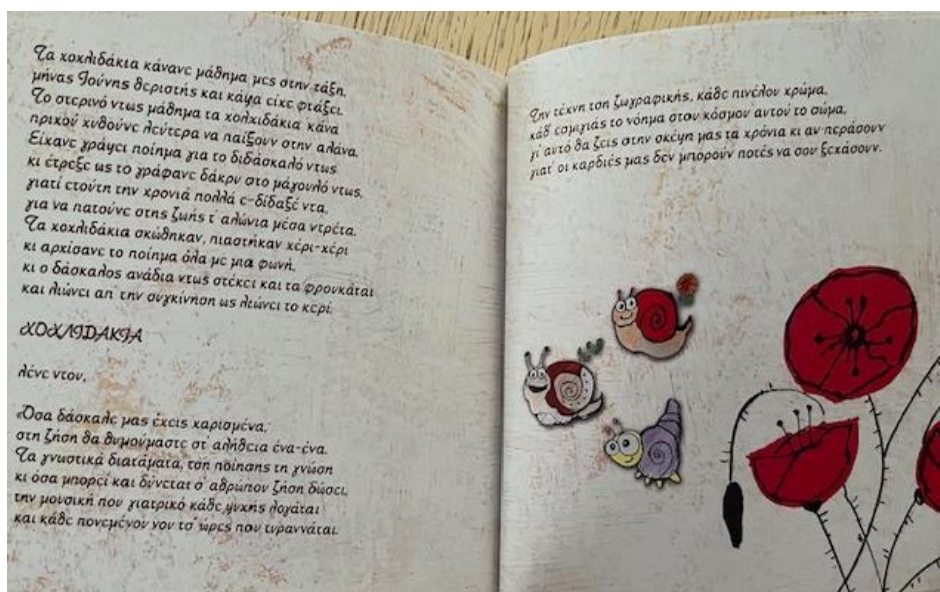 Τα χοχλιδάκια κάνανε μάθημα μες στην τάξη,
μήνας Ιούνης θεριστής και κάψα είχε φτάξει.
Το στερινό ντως μάθημα τα χολχιδάκια κάνα
πρικού χυθούνε λεύτερα να παίξουν στην αλάνα.
Είχανε γράψει ποίημα για το διδάσκαλό ντως
κι έτρεξε ως το γράφανε δάκρυ στο μάγουλό ντως,
γιατί ετούτη την χρονιά πολλά ε-δίδαξέ ντα,
για να πατούνε στης ζωής τ' αλώνια μέσα ντρέτα.
Τα χοχλιδάκια σκώθηκαν, πιαστήκαν χέρι-χέρι
κι αρχίσανε το ποίημα όλα με μια φωνή,
κι ο δάσκαλος ανάδια ντως στέκει και τα φρουκάται
και λιώνει απ' την συγκίνηση ως λιώνει το κερί.
ΧΟΧΛΙΔΑΚΙΑ
λένε ντου,
«Όσα δάσκαλε μας έχεις χαρισμένα,
στη ζήση θα θυμούμαστε στ' αλήθεια ένα-ένα.
Τα γνωστικά διατάματα, τση ποίησης τη γνώση
κι όσα μπορεί και δύνεται σ' αθρώπου ζήση δώσει,
την μουσική που γιατρικό κάθε ψυχής λογάται
και κάθε πονεμένου νου τσ' ώρες που τυραννάται.
Την τέχνη τση ζωγραφικής, κάθε πινέλου χρώμα,
κάθ' εσμιγιάς το νόημα στου κόσμου αυτού το σώμα,
γι' αυτό θα ζεις στην σκέψη μας τα χρόνια κι αν περάσουν
γιατ' οι καρδιές μας δεν μπορούν ποτές να σου ξεχάσουν.